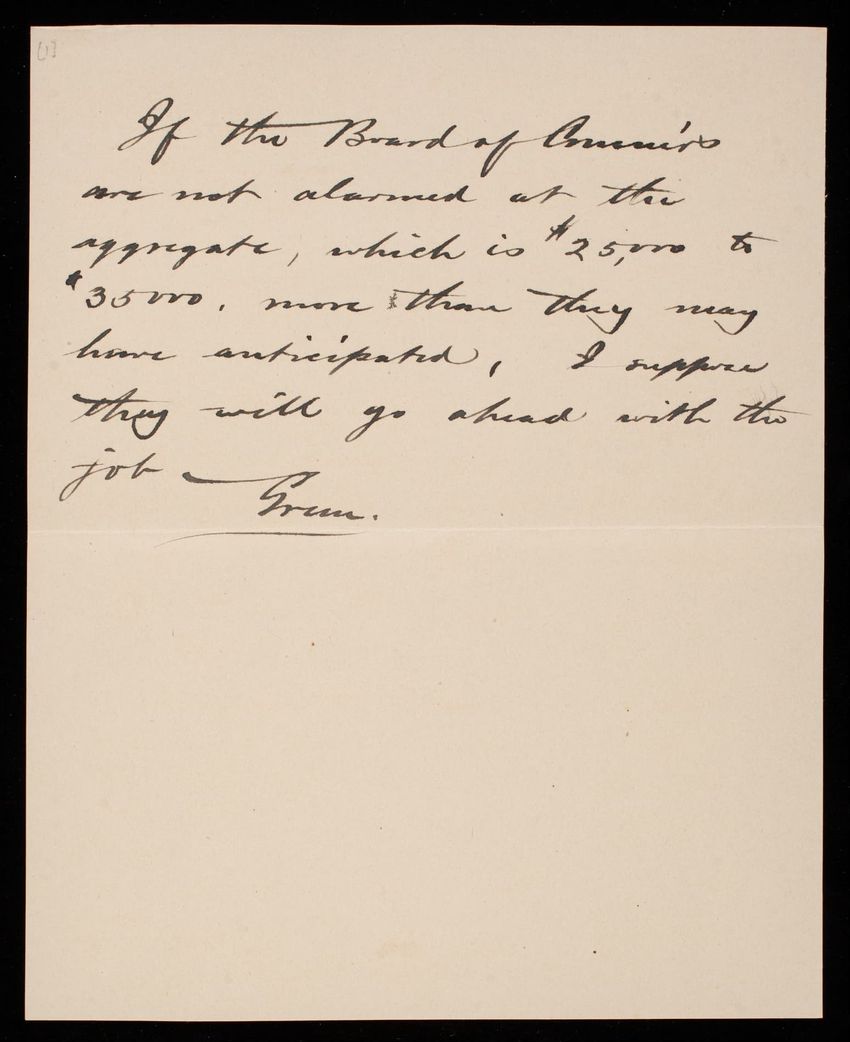 If the Board of Commi'rs
are not alarmed at the
aggregate, which is $25,000 to
$35000. more than they may
have anticipated, I suppose
they will go ahead with the
job —